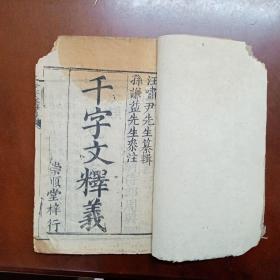 汪嘯尹先生纂輯
孫謙益先生叅注
千字文釋義
崇順堂梓行